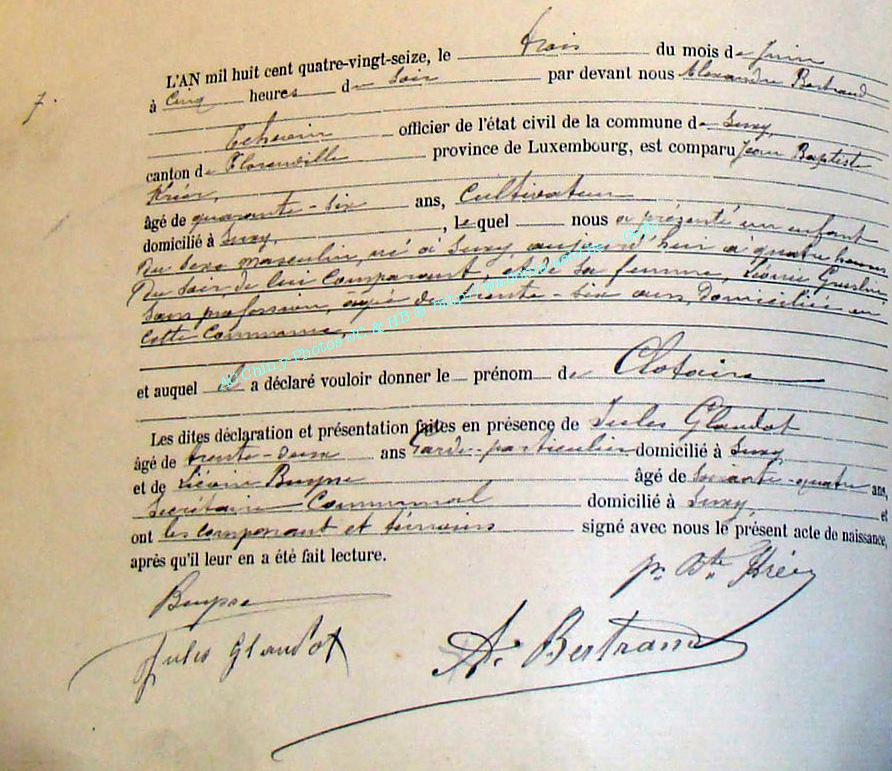 L'AN mil huit cent quatre-vingt-seize, le trois du mois de Juin
7.
à Cinq heures du Soir par devant nous Alexandre Bertrand
Echevin officier de l'état civil de la commune de Suxy,
canton de Florenville province de Luxembourg, est comparu Jean Baptiste
âgé de quarante-six ans, Cultivateur
domicilié à Suxy, lequel nous a présenté un enfant
du sexe masculin, né à Suxy, aujourd'hui à quatre heures
du Soir, de lui Comparant, et de sa femme,
sans profession, âgée de trente-six ans, Domiciliée en
cette Commune,
© Chiny-Photos JC & HB @ http://www
et auquel il a déclaré vouloir donner le prénom de Clotaire
Les dites déclaration et présentation faites en présence de Jules Glaudot
âgé de trente-deux ans Garde-particulier domicilié à Suxy
et de Buysse âgé de Soixante-quatre ans,
Secrétaire Communal domicilié à Suxy, et
ont les comparant et témoins signé avec nous le présent acte de naissance,
après qu'il leur en a été fait lecture.
Bte
Buysse
Jules Glaudot
A. Bertrand